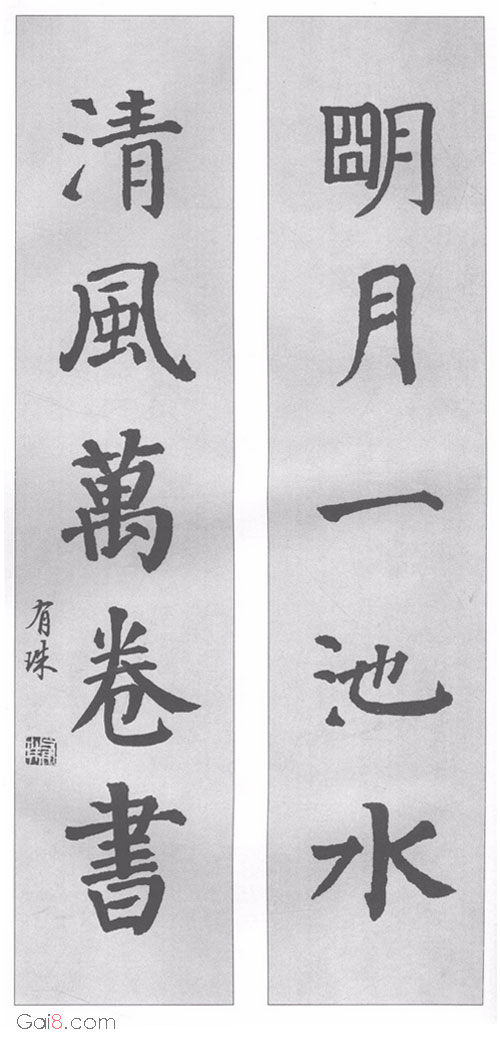 明月一池水
清風萬卷書
有珠
Gai8.com